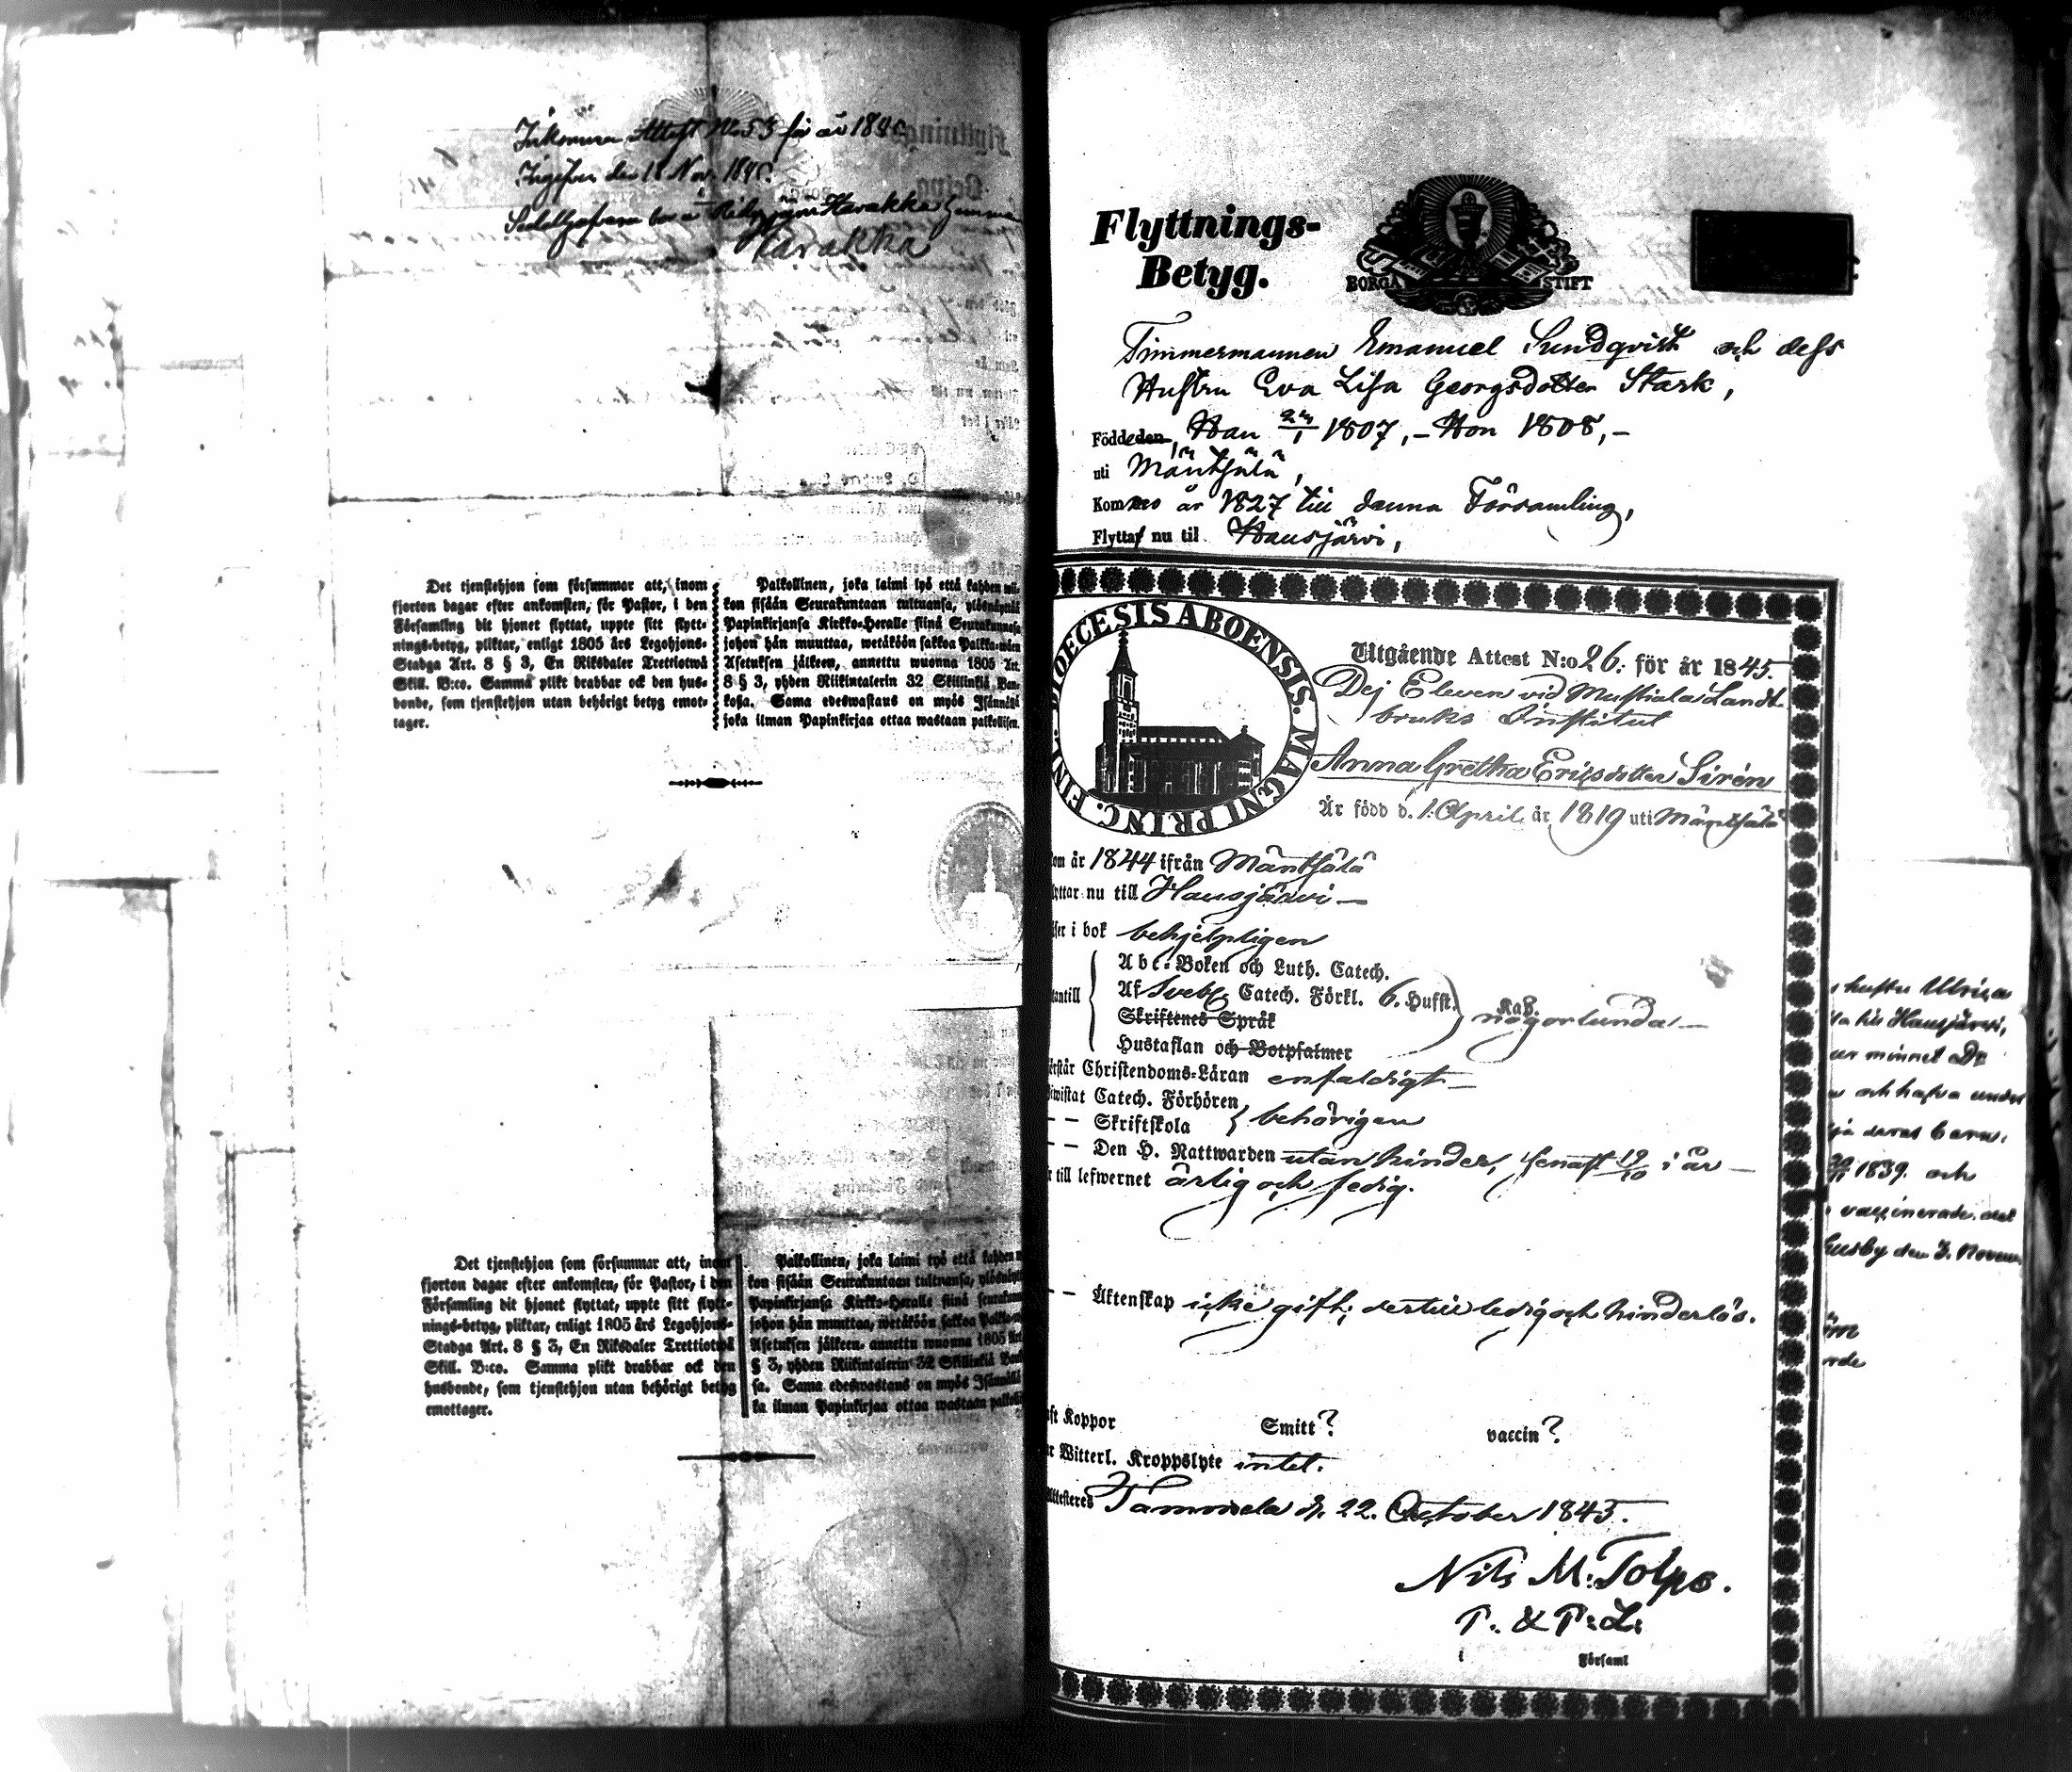 Inkommen Attest No 53 för år 1845
Ingifven den 18 Nov. 1845.
Harakka
Harakka
Det tjenstehjon som försummar att, inom
fjorton dagar efter ankomsten, för Pastor, i den
Församling dit hjonet flyttat, uppte sitt flytt-
nings-betyg, pliktar, enligt 1805 års Legohjons-
Stadga Art. 8 § 3, En Riksdaler Trettiotwå
Skill. B:co. Samma plikt drabbar ock den hus-
bonde, som tjenstehjon utan behörigt betyg emot-
tager.
Palkollinen, joka laimi lyö että kahden wii-
kon sisään Seurakuntaan tultuansa, ylösnäyttää
Papinkirjansa Kirkko-Heralle siinä Seurakunnasa
johon hän muuttaa, wetäköön sakkoa Palkka-wäen
Asetuksen jälkeen, annettu wuonna 1805 Art.
8 § 3, yhden Riikintalerin 32 Skillinkiä Ban-
kosa. Sama edeswastaus on myös Isännällä
joka ilman Papinkirjaa ottaa wastaan palkollisen.
Det tjenstehjon som försummar att, inom
fjorton dagar efter ankomsten, för Pastor, i den
Församling dit hjonet flyttat, uppte sitt flytt-
nings-betyg, pliktar, enligt 1805 års Legohjons-
Stadga Art. 8 § 3, En Riksdaler Trettiotwå
Skill. B:co. Samma plikt drabbar ock den
husbonde, som tjenstehjon utan behörigt betyg
emottager.
Palkollinen, joka laimi lyö että kahden
kon sisään Seurakuntaan tultuansa,
Papinkirjansa Kirkko-Heralle siinä
johon hän muuttaa, wetäköön sakkoa
Asetuksen jälkeen, annettu wuonna 1805
§ 3, yhden Riikintalerin 32 Skillinkiä
sa. Sama edeswastaus on myös Isännällä
ka ilman Papinkirjaa ottaa wastaan
Flyttnings-
Betyg.
BORGÅ STIFT
Timmermannen Emanuel Sundqvist och dess
Hustru Eva Lisa Georgsdotter Stark,
Född den Han 24/1 1807, – Hon 1808, –
uti Mäntsälä,
Kommo år 1827 till denna Församling,
Flytta nu til Hausjärvi,
DIOECESIS ABOENSIS. MAGNI PRINC. FINL.
Utgående Attest N:o 26: för år 1845.
Dej Eleven vid Mustiala Landt
bruks Institut
Anna Gretha Ericsdotter Sirén
Är född d. 1. April år 1819 uti Mäntsälä
om år 1844 ifrån Mäntsälä
yttar nu till Hausjärvi –
äser i bok behjelpligen
Abc-Boken och Luth. Catech.
antill Af Sveb. Catech. Förkl. 6. Hufst. Kap. någorlunda. –
Skriftenes Språk
Hustaflan och Botpsalmer
örstår Christendoms-Läran enfaldigt –
iwistat Catech. Förhören
– – Skriftskola behörigen
– – Den H. Nattwarden utan hinder, senast 19/10 i år –
r till lefwernet ärlig och sedig.
– – Äktenskap icke gift; dertill ledig och hinderlös.
aft Koppor Smitt? vaccin?
r Witterl. Kroppslyte intet.
Attesteres Tammela d. 22. October 1845.
Nils M. Tolpo.
P. & P: L:
i Församl
hustru Ulrica
Hausjärvi,
minnet
och hafva under
deras barn,
1839. och
vaccinerade
den 3. Novem